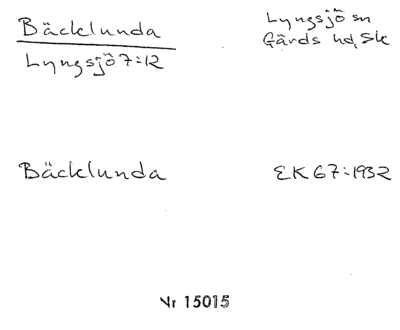 Bäcklunda
Lyngsjö 7:12
Lyngsjö sn
Gärds hd, Sk
Bäcklunda
EK 67:1932
Nr 15015